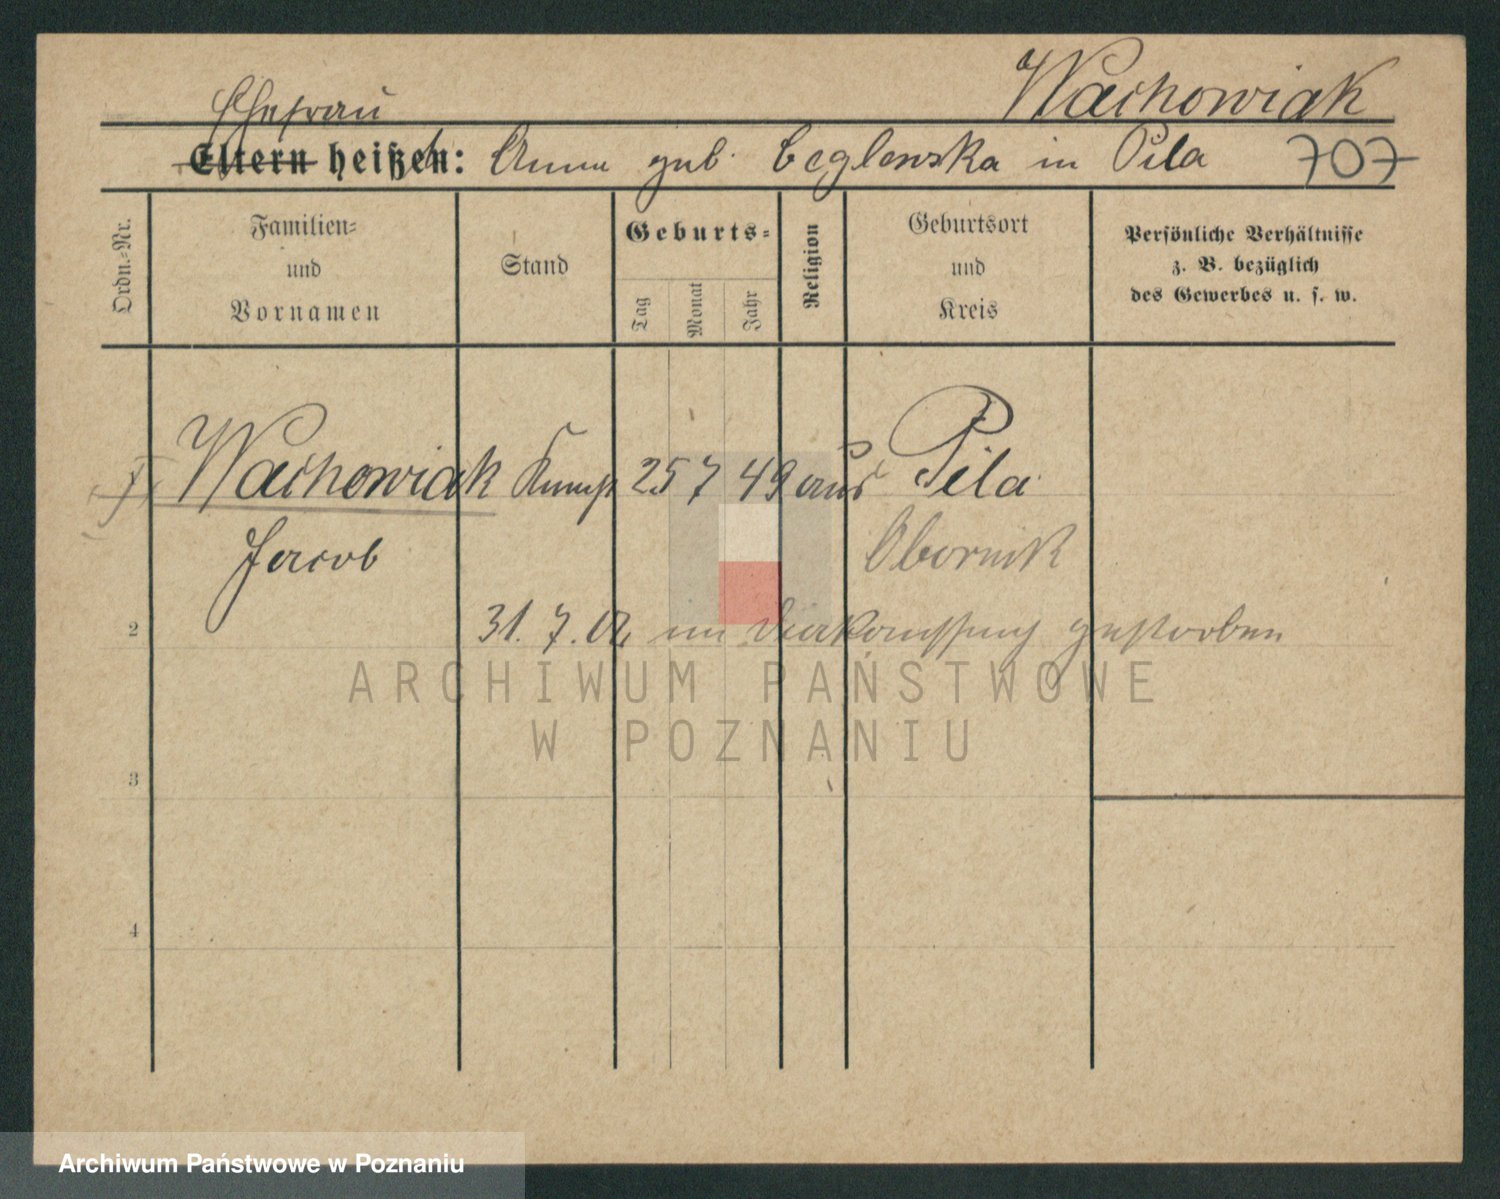 Wachowiak
Ehefrau
Eltern heißen: Anna geb. Ceglewska in Pila 707
Ordn.-Nr.
Familien-
und
Vornamen
Stand
Geburts-
Tag
Monat
Jahr
Religion
Geburtsort
und
Kreis
Persönliche Verhältnisse
z. B. bezüglich
des Gewerbes u. s. w.
Wachowiak 25 7 49 aus Pila
Jacob Obornik
2 31. 7. im Diakonissenh gestorben
ARCHIWUM PAŃSTWOWE
W POZNANIU
3
4
Archiwum Państwowe w Poznaniu